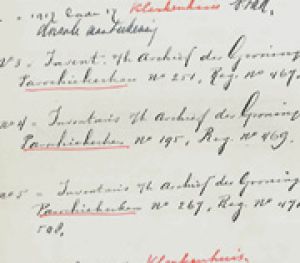 Klerkenhuis
No 3 = Invent. v/h Archief der Groning
Parochiekerken No 251, Reg. No 467
No 4 = Inventaris v/h Archief der Groning
Parochiekerken No 195, Reg. No 469.
No 5 = Inventaris v/h Archief der Groning
Parochiekerken No 267, Reg. No 470
508.
Klerkenhuis.